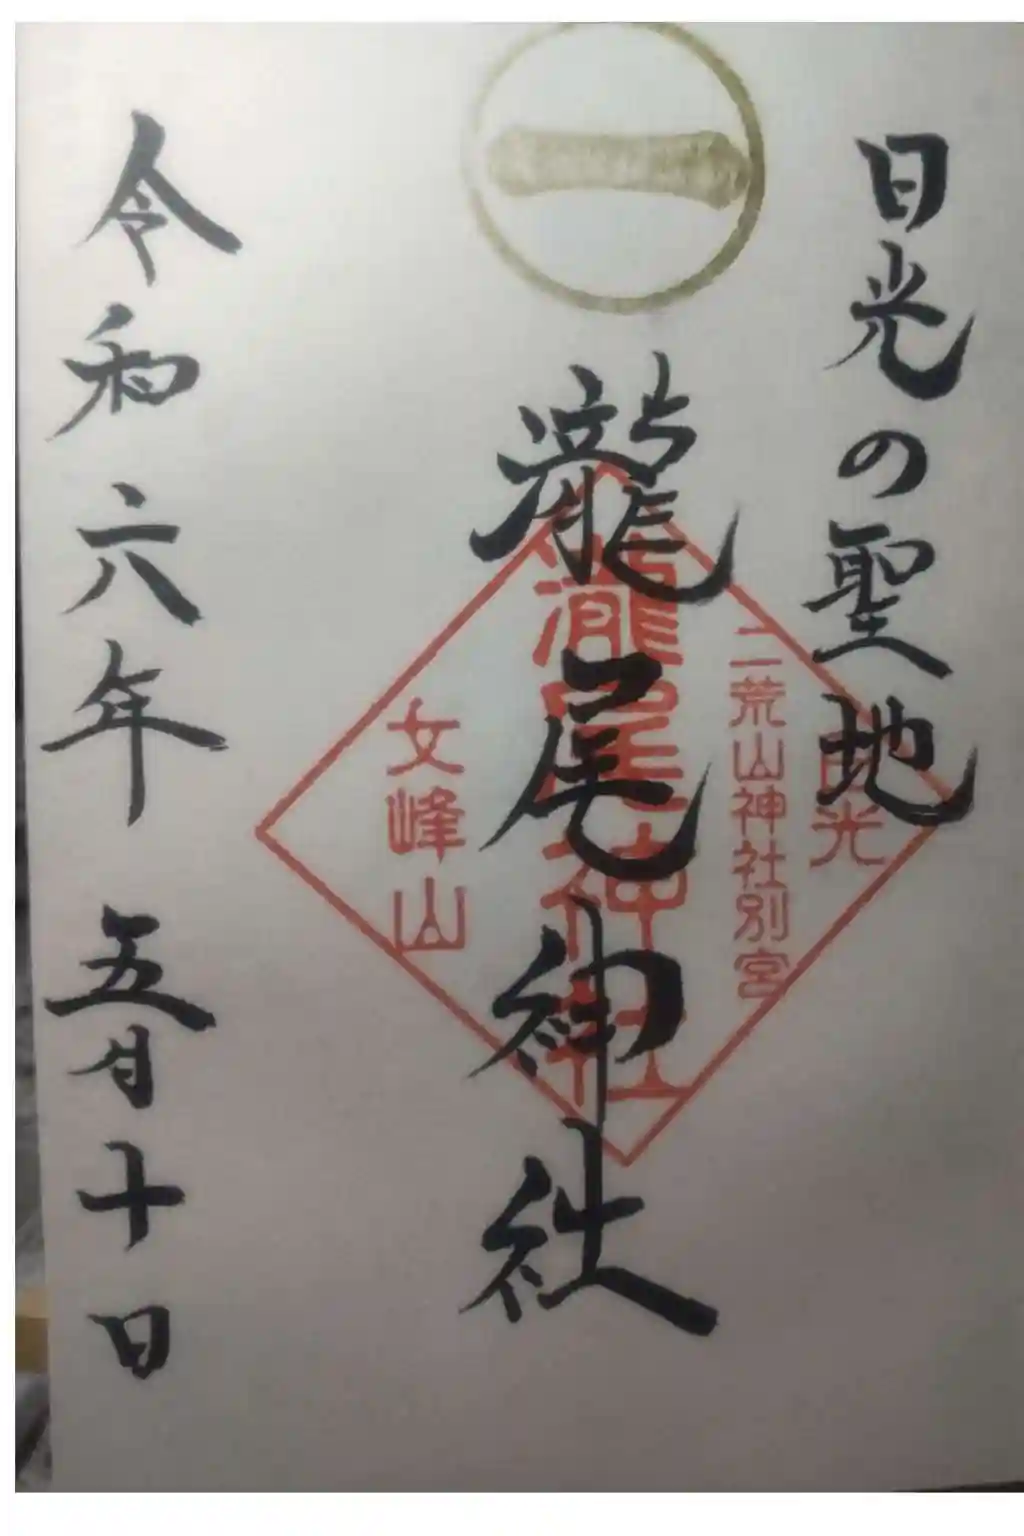 日光の聖地
一
瀧尾神社
令和六年 五月十日
日光
二荒山神社別宮
瀧尾神社
女峰山